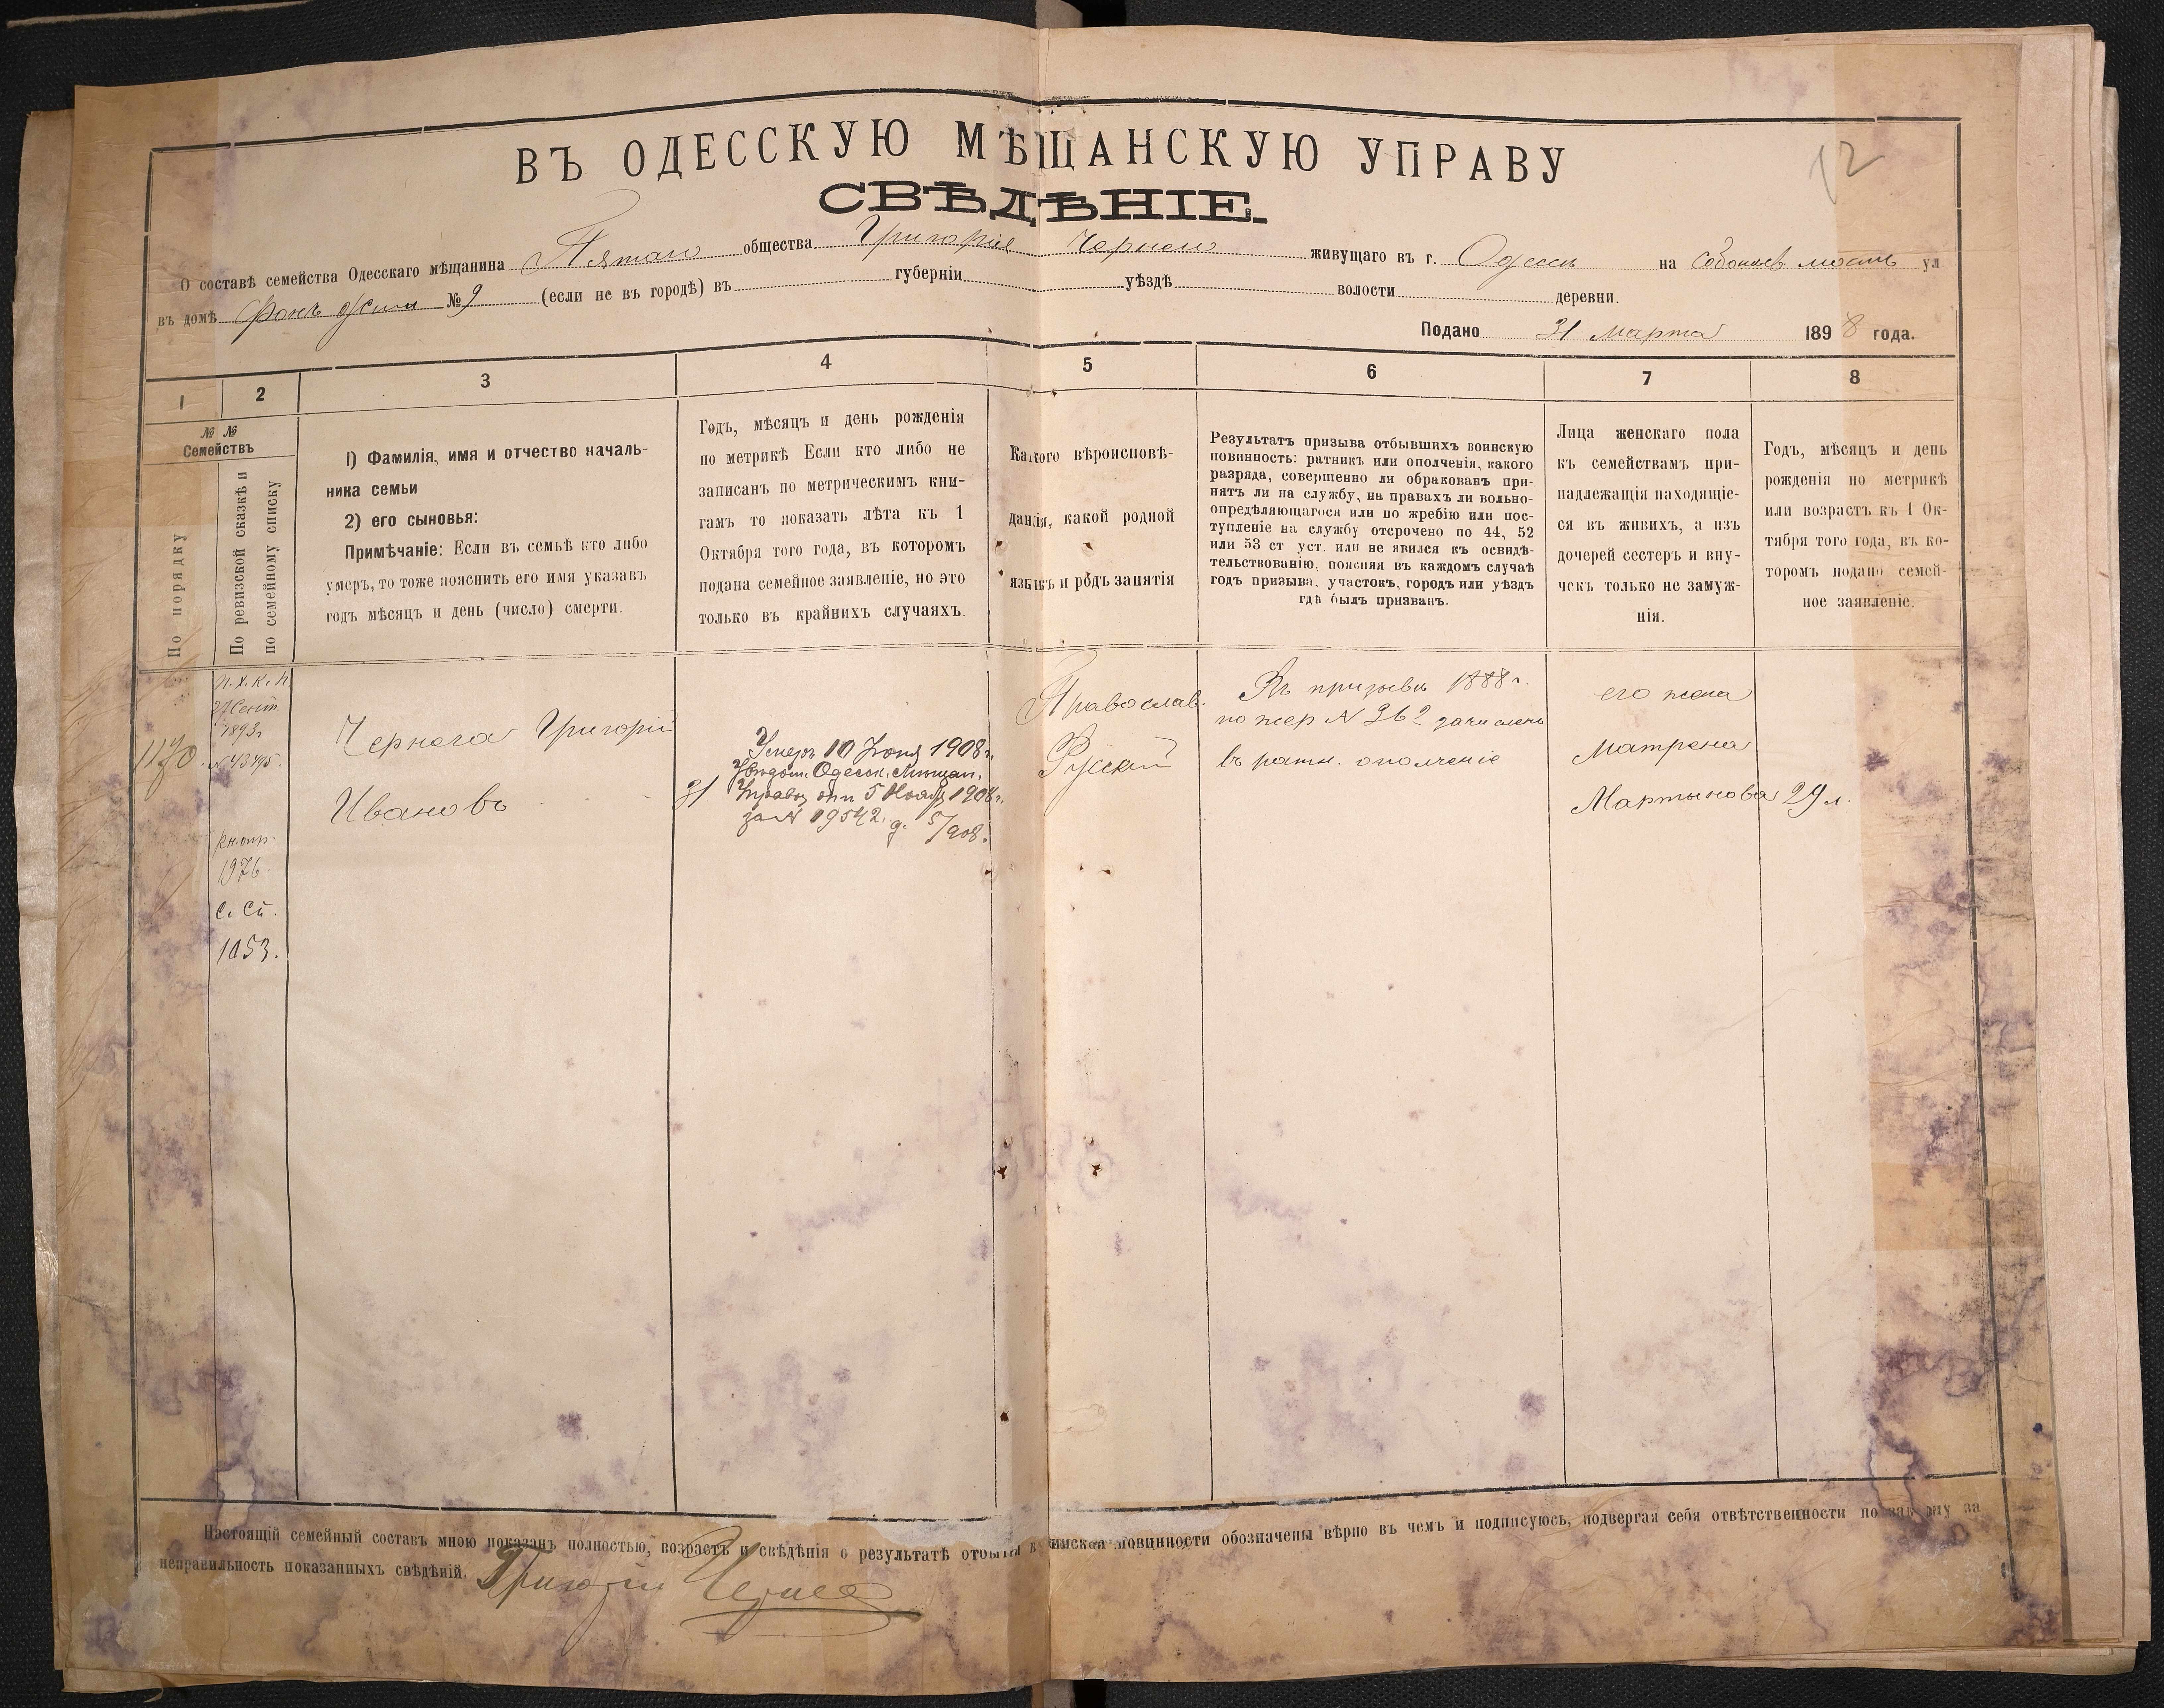 12
ВЪ ОДЕССКУЮ МѢЩАНСКУЮ УПРАВУ
СВѢДѢНІЕ.
О составѣ семейства Одесскаго мѣщанина Пятаго общества Григорія живущаго въ г. Одессѣ на ул
въ домѣ № 9 (если не въ городѣ) въ губерніи уѣздѣ волости деревни.
Подано 31 марта 1898 года.
1 2 3 4 5 6 7 8
№ №
Семействъ
По порядку
По ревизской сказкѣ и
по семейному списку
1) Фамилія, имя и отчество началь-
ника семьи
2) его сыновья:
Примѣчаніе: Если въ семьѣ кто либо
умеръ, то тоже пояснить его имя указавъ
годъ мѣсяцъ и день (число) смерти.
Годъ, мѣсяцъ и день рожденія
по метрикѣ Если кто либо не
записанъ по метрическимъ кни-
гамъ то показать лѣта къ 1
Октября того года, въ которомъ
подана семейное заявленіе, но это
только въ крайнихъ случаяхъ.
Какого вѣроисповѣ-
данія, какой родной
языкъ и родъ занятія
Результатъ призыва отбывшихъ воинскую
повинность: ратникъ или ополченія, какого
разряда, совершенно ли обракованъ при-
нятъ ли на службу, на правахъ ли вольно-
опредѣляющагося или по жребію или пос-
тупленіе на службу отсрочено по 44, 52
или 53 ст уст. или не явился къ освидѣ-
тельствованію, поясняя въ каждомъ случаѣ
годъ призыва, участокъ, городъ или уѣздъ
гдѣ былъ призванъ.
Лица женскаго пола
къ семействамъ при-
надлежащія находящіе-
ся въ живихъ, а изъ
дочерей сестеръ и вну-
чекъ только не замуж-
нія.
Годъ, мѣсяцъ и день
рожденія по метрикѣ
или возрастъ къ 1 Ок-
тября того года, въ ко-
торомъ подано семей-
ное заявленіе.
п. х. к. п.
1893г
№ 43495.
1170.
1976
с. сп.
1053.
Чернега Григорій
Ивановъ
31
Умеръ 10 Іюня 1908 г.
Увѣдом. Одесск. Мѣщан.
Управы отъ 5 Ноября 1908 г.
за № 19542. д. 5/908.
Православ.
Русскій
Въ призывъ 1888 г.
по жер № 262 зачисленъ
въ ратн. ополченіе
его жена
Матрена
Мартынова 29 л.
Настоящій семейный составъ мною показанъ полностью, возрастъ и свѣдѣнія о результатѣ отбытія воинской повинности обозначены вѣрно въ чемъ и подписуюсь, подвергая себя отвѣтственности по закону за
неправильность показанныхъ свѣдѣній. Григорій